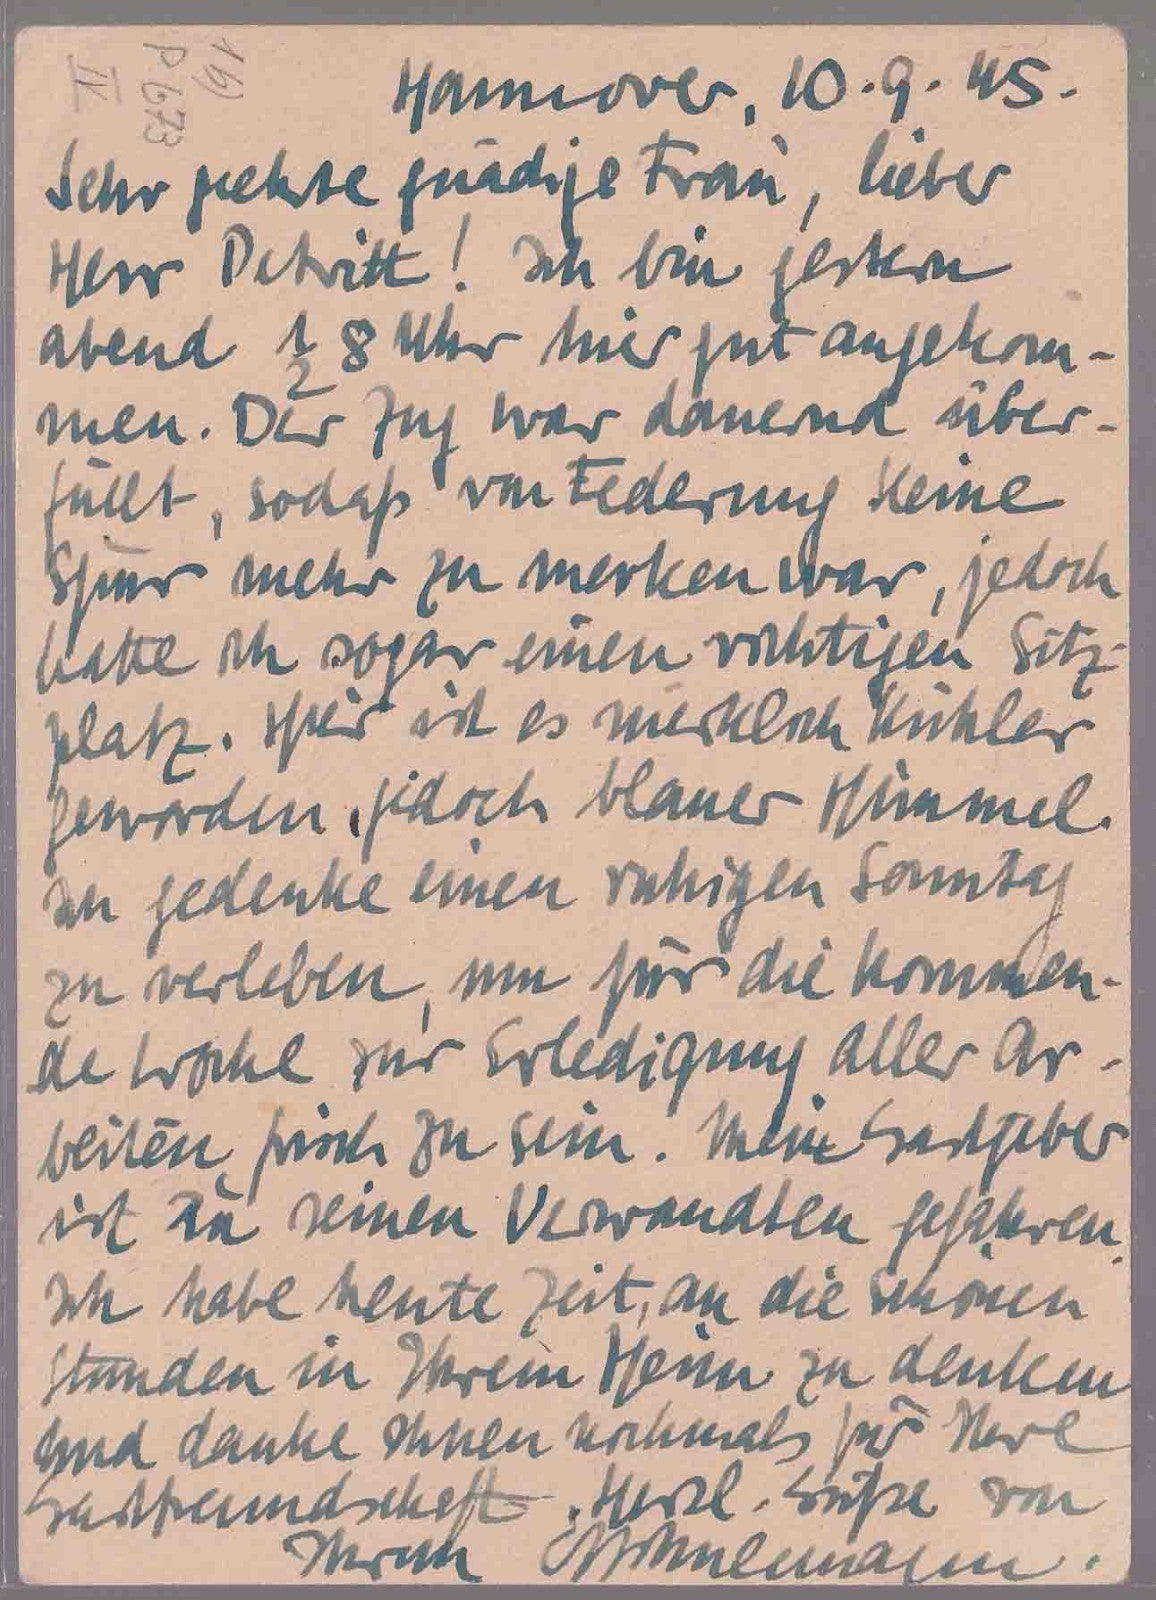 16)
P 673
IV
Hannover, 10.9.45.
Sehr geehrte gnädige Frau, lieber
Herr Detritt! Ich bin gestern
abend ½ 8 Uhr hier gut angekom-
men. Der Zug war dauernd über-
füllt, sodaß von Federung keine
Spur mehr zu merken war, jedoch
hatte ich sogar einen richtigen Sitz-
platz. Hier ist es merklich kühler
geworden, jedoch blauer Himmel.
Ich gedenke einen ruhigen Sonntag
zu verleben, um für die kommen-
de Woche zur Erledigung aller Ar-
beiten frisch zu sein. Mein Gastgeber
ist zu seinen Verwandten gefahren.
Ich habe heute Zeit, an die schönen
Stunden in Ihrem Heim zu denken
und danke Ihnen nochmals für Ihre
Gastfreundschaft. Herzl. Grüße von
Ihrem